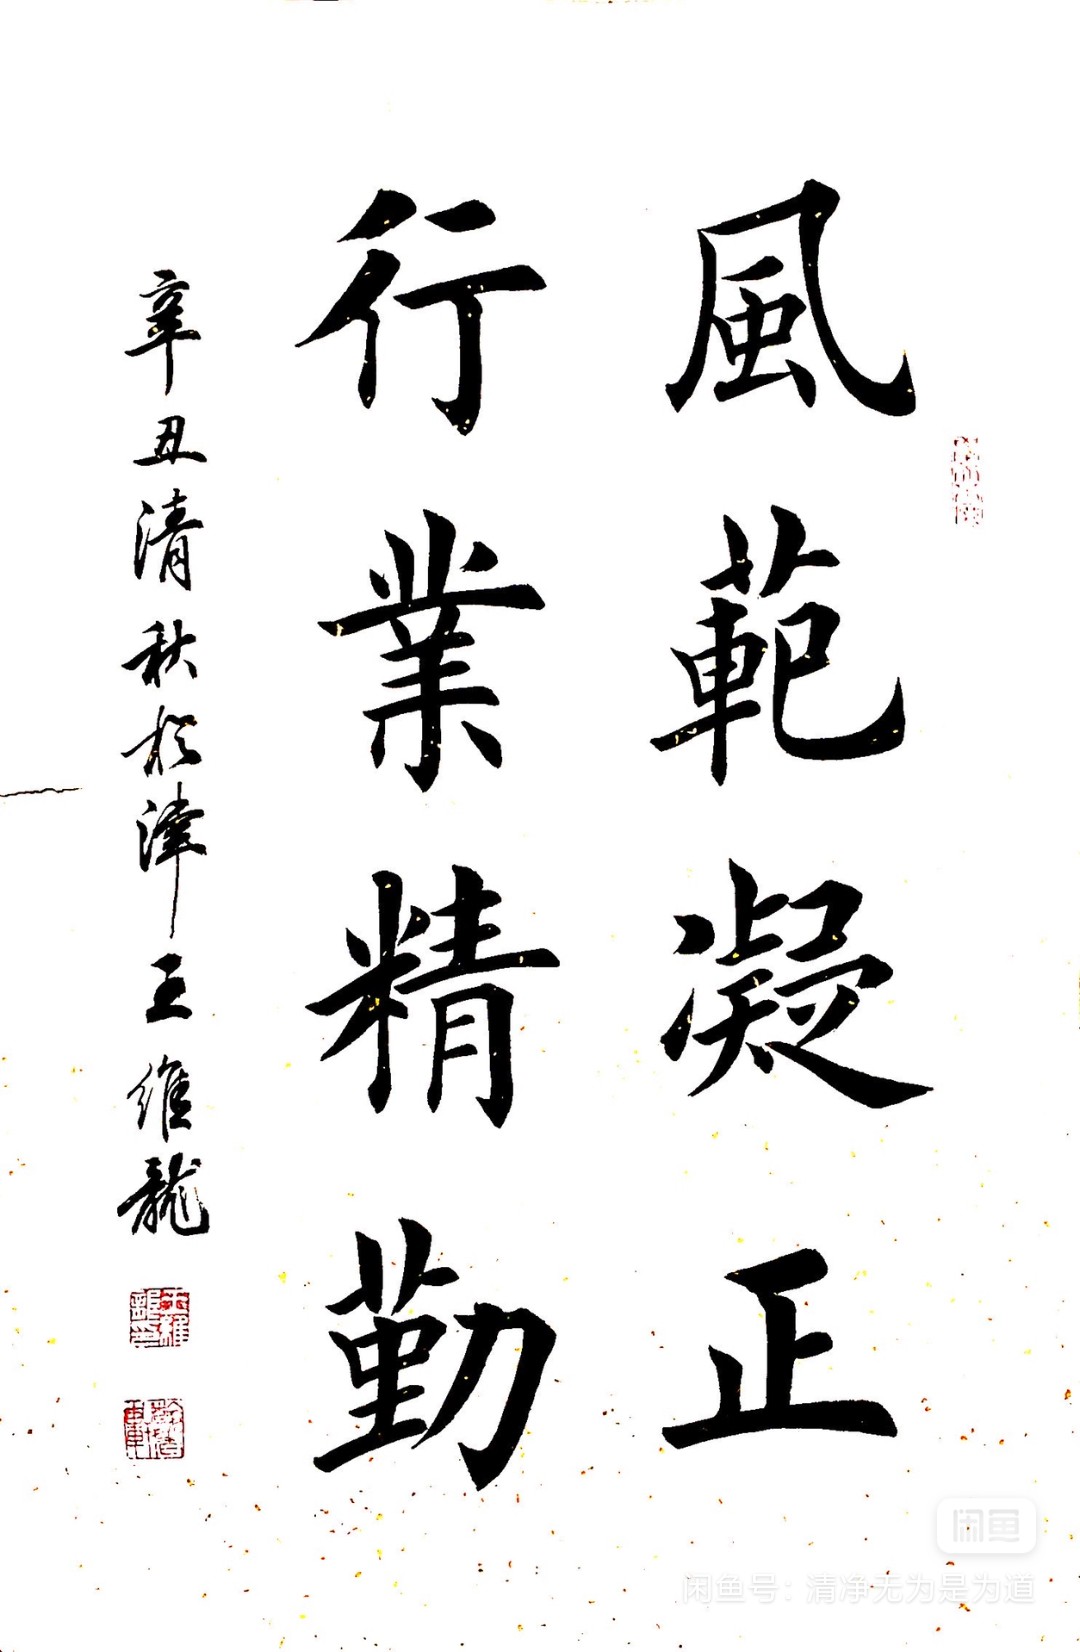 風範凝正
行業精勤
辛丑清秋於津王維龍
闲鱼
闲鱼号：清净无为是为道